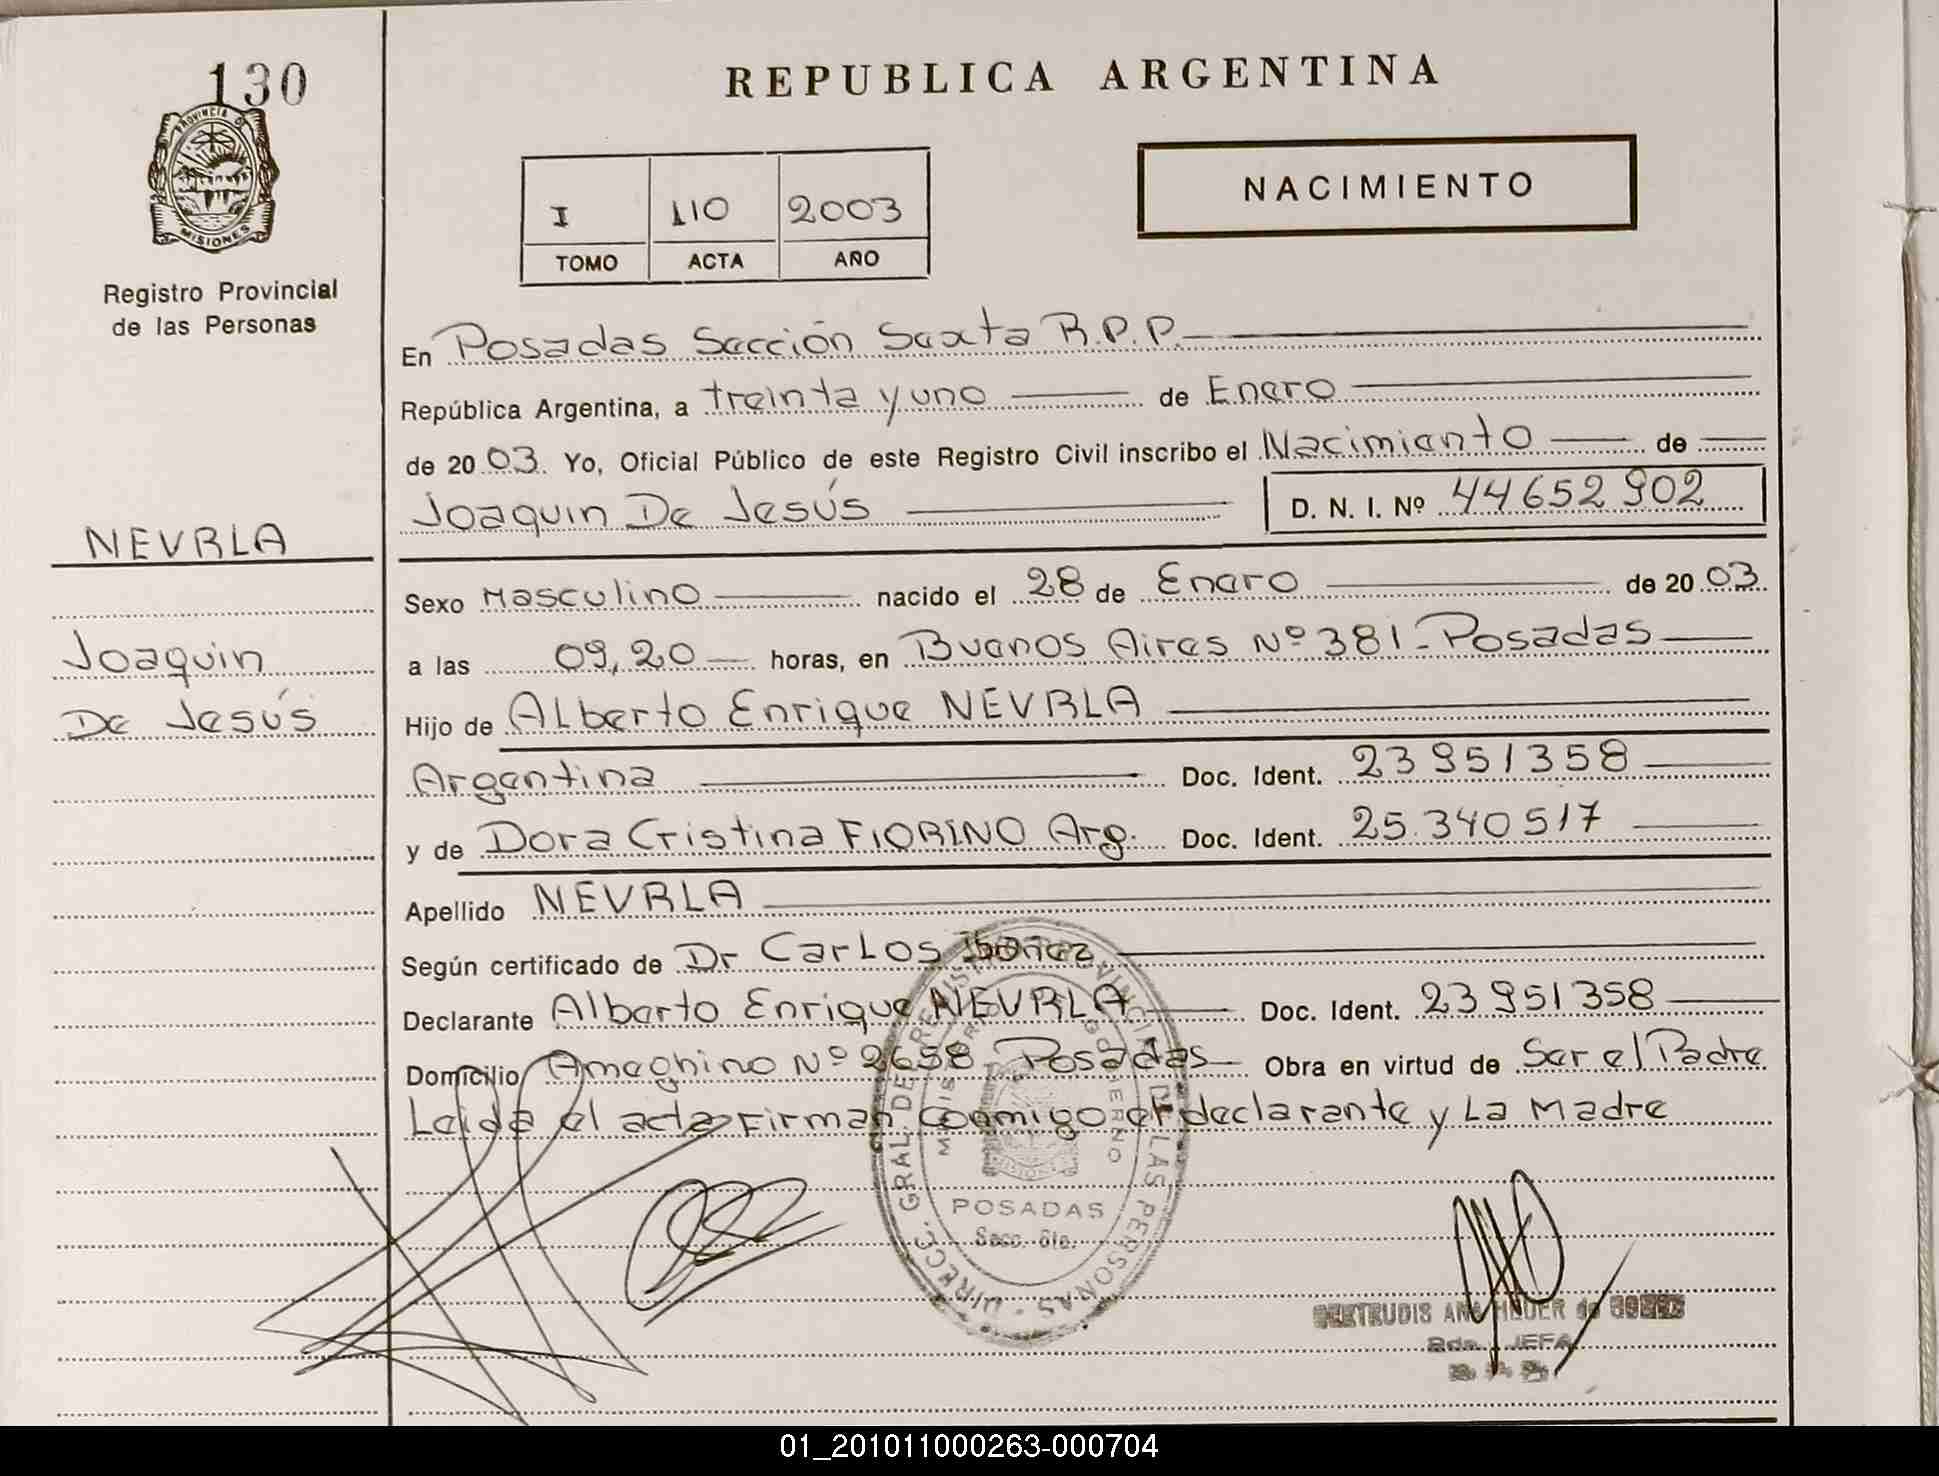 130
PROVINCIA DE
MISIONES
Registro Provincial
de las Personas
NEVRLA
Joaquin
De Jesús
REPUBLICA ARGENTINA
I 110 2003
TOMO ACTA AÑO
NACIMIENTO
En Posadas Sección Sexta R.P.P.
República Argentina, a treinta y uno de Enero
de 2003. Yo, Oficial Público de este Registro Civil inscribo el Nacimiento de
Joaquin De Jesús D. N. I. Nº 44652902
Sexo Masculino nacido el 28 de Enero de 2003.
a las 09,20 horas, en Buenos Aires Nº 381-Posadas
Hijo de Alberto Enrique NEVRLA
Argentina Doc. Ident. 23951358
y de Dora Cristina FIORINO Arg. Doc. Ident. 25.340517
Apellido NEVRLA
Según certificado de Dr Carlos Ibañez
Declarante Alberto Enrique NEVRLA Doc. Ident. 23951358
Domicilio Ameghino Nº 2658 Posadas Obra en virtud de Ser el Padre
Leida el acta Firman conmigo el declarante y La Madre
DIRECC. GRAL DE REGISTRO PROVINCIAL DE LAS PERSONAS
MINISTERIO GOBIERNO
MISIONES
POSADAS
Secc. 6ta.
GERTRUDIS ANA HEUER de
JEFA
01_201011000263-000704